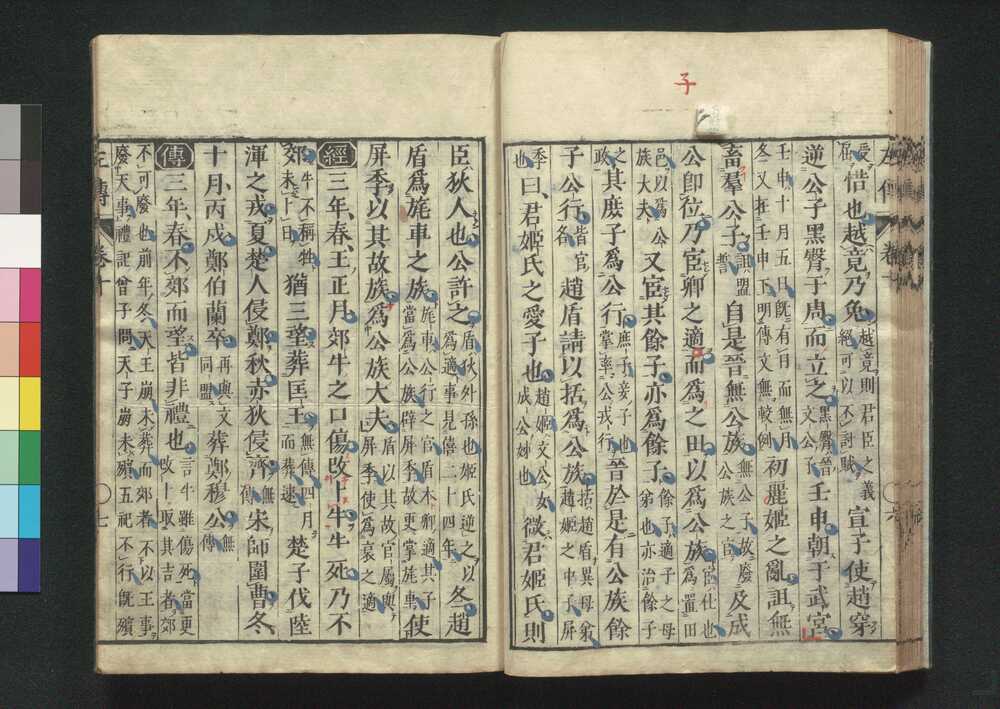 子
受屈惜也越竟乃免越竟則君臣之義絕可以不討賊宣子使趙穿
逆公子黑臀于周而立之黑臀晉文公子壬申朝于武宮
壬申十月五日旣有日而無月冬又在壬申下明傳文無較例初麗姬之亂詛無
畜羣公子詛盟誓自是晉無公族無公子故廢公族之官及成
公卽位乃宦卿之適而爲之田以爲公族宦仕也爲置田
邑以爲公族大夫又宦其餘子亦爲餘子餘子適子之母弟也亦治餘子
之政其庶子爲公行庶子妾子也掌率公戎行晉於是有公族餘
子公行皆官名趙盾請以括爲公族括趙盾異母弟趙姬之中子屏
季也曰君姬氏之愛子也趙姬文公女成公姊也微君姬氏則
臣狄人也公許之盾狄外孫也姬氏逆之以爲適事見僖二十四年冬趙
盾爲旄車之族旄車公行之官盾本卿適其子當爲公族辟屏季故更掌旄車使
屏季以其故族爲公族大夫盾以其故官屬與屏季使爲衰之適
經三年春王正月郊牛之口傷改卜牛牛死乃不
郊牛不稱牲未卜日猶三望葬匡王無傳四月而葬速楚子伐陸
渾之戎夏楚人侵鄭秋赤狄侵齊無傳宋師圍曹冬
十月丙戌鄭伯蘭卒再與文同盟葬鄭穆公無傳
傳三年春不郊而望皆非禮也言牛雖傷死當更改卜取其吉者郊
不可廢也前年冬天王崩未葬而郊者不以王事廢天事禮記曾子問天子崩未殯五祀不行旣殯
左傳 卷十 七